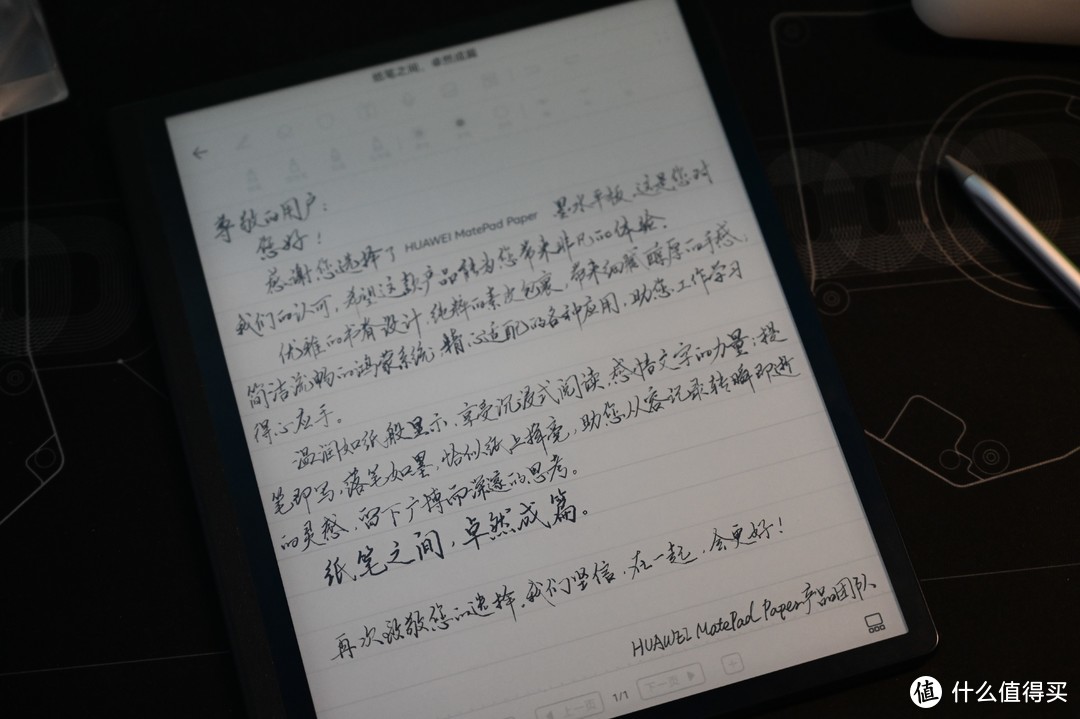 纸笔之间，卓然成篇
尊敬的用户：
您好！
感谢您选择了 HUAWEI MatePad Paper 墨水平板，这是您对
我们的认可，希望这款产品能为您带来非凡的体验。
优雅的书脊设计，纯粹的素皮包裹，带来细腻醇厚的手感；
简洁流畅的鸿蒙系统，精心适配的各种应用，助您工作学习
得心应手。
温润如纸般显示，享受沉浸式阅读，感悟文字的力量；提
笔即写，落笔如墨，恰似纸上挥毫，助您从容记录转瞬即逝
的灵感，留下广博而深邃的思考。
纸笔之间，卓然成篇。
再次致敬您的选择，我们坚信，在一起，会更好！
HUAWEI MatePad Paper产品团队
上一页 1/1 下一页
值 什么值得买